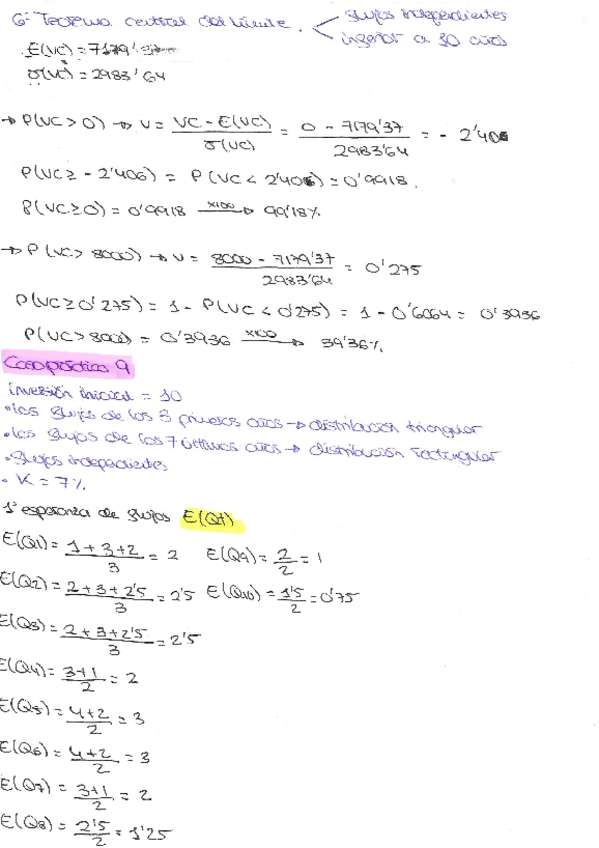 6º Teorema central del límite. flujos independientes
inferior a 30 años
E(VC) = 7179'37
σ(VC) = 2983'64
→ P(VC > 0) → V = VC - E(VC) / σ(VC) = 0 - 7179'37 / 2983'64 = - 2'406
P(VC ≥ - 2'406) = P(VC < 2'406) = 0'9918.
P(VC ≥ 0) = 0'9918 x100 → 99'18%
→ P(VC > 8000) → V = 8000 - 7179'37 / 2983'64 = 0'275
P(VC ≥ 0'275) = 1 - P(VC < 0'275) = 1 - 0'6064 = 0'3936
P(VC > 8000) = 0'3936 x100 → 39'36%.
Caso práctico 9
inversión inicial = 10
• los flujos de los 3 primeros años → distribución triangular
• los flujos de los 7 últimos años → distribución rectangular
• flujos independientes
• K = 7%
1º esperanza de flujos E(Qt)
E(Q1) = 1 + 3 + 2 / 3 = 2 E(Q9) = 2 / 2 = 1
E(Q2) = 2 + 3 + 2'5 / 3 = 2'5 E(Q10) = 1'5 / 2 = 0'75
E(Q3) = 2 + 3 + 2'5 / 3 = 2'5
E(Q4) = 3 + 1 / 2 = 2
E(Q5) = 4 + 2 / 2 = 3
E(Q6) = 4 + 2 / 2 = 3
E(Q7) = 3 + 1 / 2 = 2
E(Q8) = 2'5 / 2 = 1'25